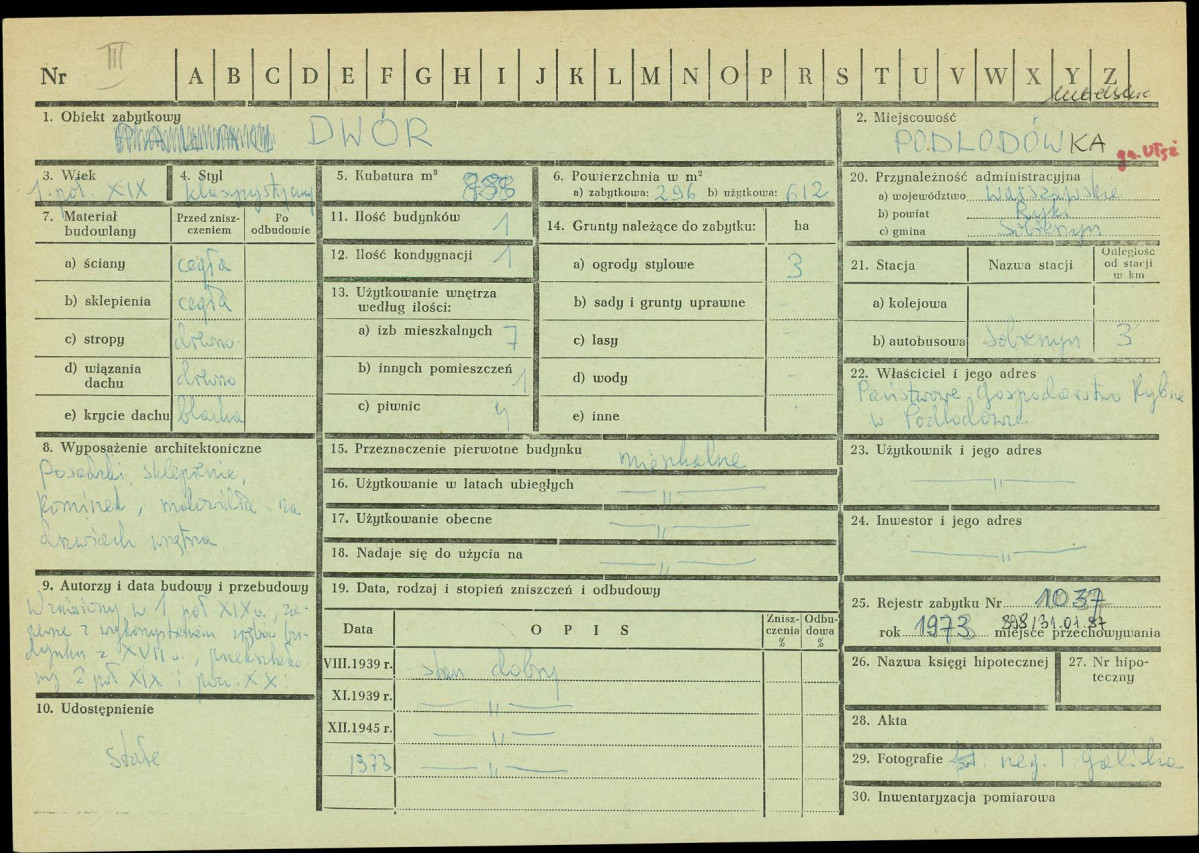 Nr III A B C D E F G H I J K L M N O P R S T U V W X Y Z
1. Obiekt zabytkowy
DWÓR
2. Miejscowość
PODLODÓWKA
gm. Ułęż
3. Wiek
1. poł. XIX
4. Styl
klasycystyczny
5. Kubatura m³
6. Powierzchnia w m²
a) zabytkowa: 296 b) użytkowa: 612
20. Przynależność administracyjna
a) województwo warszawskie
b) powiat Ryki
c) gmina Sobieszyn
7. Materiał budowlany
Przed zniszczeniem
Po odbudowie
a) ściany cegła
b) sklepienia cegła
c) stropy drewno
d) wiązania dachu drewno
e) krycie dachu blacha
11. Ilość budynków 1
12. Ilość kondygnacji 1
13. Użytkowanie wnętrza według ilości:
a) izb mieszkalnych 7
b) innych pomieszczeń 1
c) piwnic
14. Grunty należące do zabytku: ha
a) ogrody stylowe 3
b) sady i grunty uprawne -
c) lasy -
d) wody -
e) inne
21. Stacja
Nazwa stacji
Odległość od stacji w km
a) kolejowa
b) autobusowa Sobieszyn 3
22. Właściciel i jego adres
Państwowe Gospodarstwo Rybne
w Podlodówce
8. Wyposażenie architektoniczne
Posadzki sklepienie,
kominek, malowidła na
drzwiach wnętrza
15. Przeznaczenie pierwotne budynku mieszkalne
16. Użytkowanie w latach ubiegłych — " —
17. Użytkowanie obecne — " —
18. Nadaje się do użycia na — " —
23. Użytkownik i jego adres
— " —
24. Inwestor i jego adres
— " —
9. Autorzy i data budowy i przebudowy
Wzniesiony w 1 poł XIX w., za-
pewne z wykorzystaniem zrębów bu-
dynku z XVII w., przekształco-
ny 2 poł XIX i pocz. XX
10. Udostępnienie
stałe
19. Data, rodzaj i stopień zniszczeń i odbudowy
Data
OPIS
Zniszczenia %
Odbudowa %
VIII.1939 r. stan dobry
XI.1939 r. — " —
XII.1945 r. — " —
1973 — " —
25. Rejestr zabytku Nr 1037
898/31.01.87
rok 1973 miejsce przechowywania
26. Nazwa księgi hipotecznej
27. Nr hipoteczny
28. Akta
29. Fotografie fot. neg. T. Galicka
30. Inwentaryzacja pomiarowa